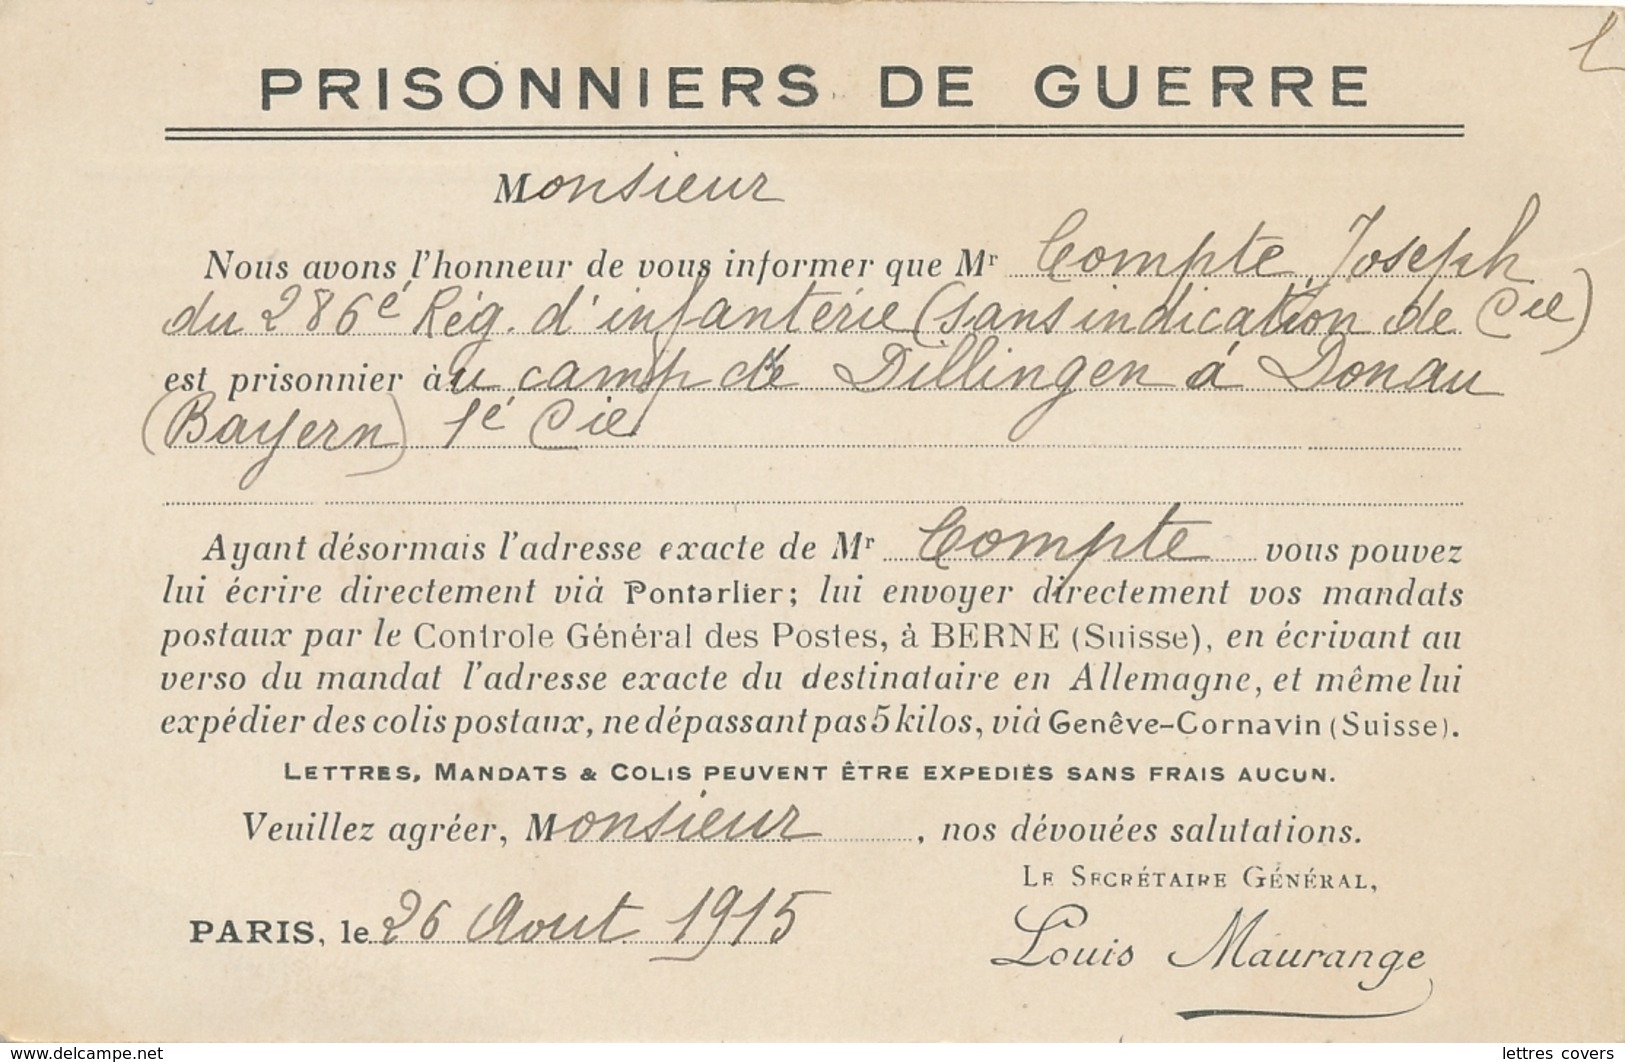 PRISONNIERS DE GUERRE
Monsieur
Nous avons l'honneur de vous informer que Mr Compte, Joseph
du 286e Rég. d'infanterie (sans indication de Cie)
est prisonnier àu camp de Dillingen à Donau
(Bayern) 1é Cie
Ayant désormais l'adresse exacte de Mr Compte vous pouvez
lui écrire directement vià Pontarlier; lui envoyer directement vos mandats
postaux par le Controle Général des Postes, à BERNE (Suisse), en écrivant au
verso du mandat l'adresse exacte du destinataire en Allemagne, et même lui
expédier des colis postaux, ne dépassant pas 5 kilos, vià Genêve-Cornavin (Suisse).
LETTRES, MANDATS & COLIS PEUVENT ÊTRE EXPEDIÉS SANS FRAIS AUCUN.
Veuillez agréer, Monsieur, nos dévouées salutations.
LE SECRÉTAIRE GÉNÉRAL,
PARIS, le 26 Aout 1915
Louis Maurange
www.delcampe.net
lettres covers